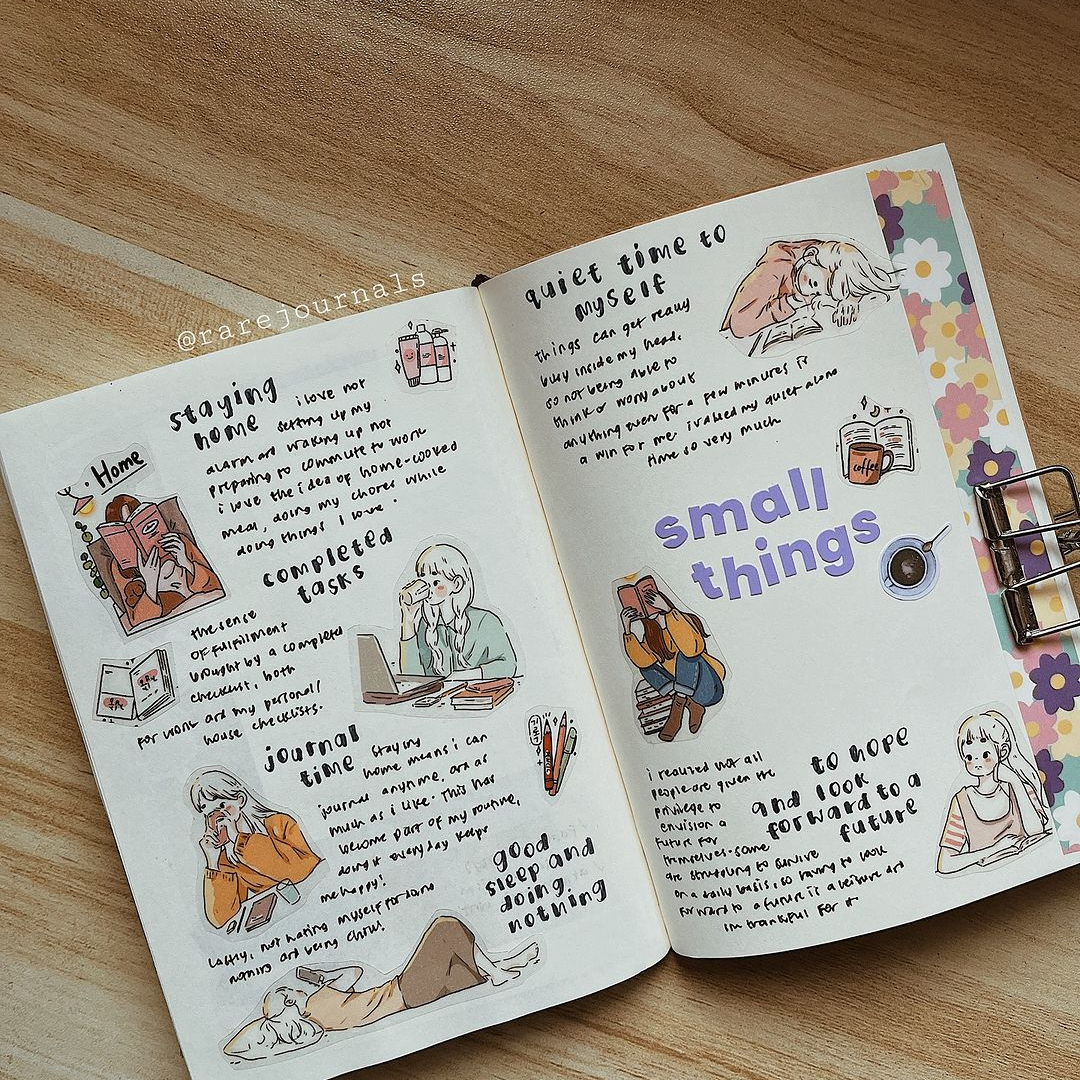 @rarejournals
staying
home
i love not
setting up my
alarm and waking up not
preparing to commute to work
i love the idea of home-cooked
meal, doing my chores while
doing things i love.
Home
completed
tasks
the sense
of fulfillment
brought by a completed
checklist, both
for work and my personal/
house checklists.
journal
time
staying
home means i can
journal anytime, and as
much as i like. This has
become part of my routine,
doing it everyday keeps
me happy!
good
sleep and
doing
nothing
Lastly, not hating myself for doing
nothing and being chill!
quiet time to
myself
things can get really
busy inside my head.
so not being able to
think or worry about
anything even for a few minutes is
a win for me. i valued my quiet alone
time so very much
coffee
small
things
to hope
and look
forward to a
future
i realized not all
people are given the
privilege to
envision a
future for
themselves-some
are struggling to survive
on a daily basis, so having to look
forward to a future is a leisure and
im thankful for it